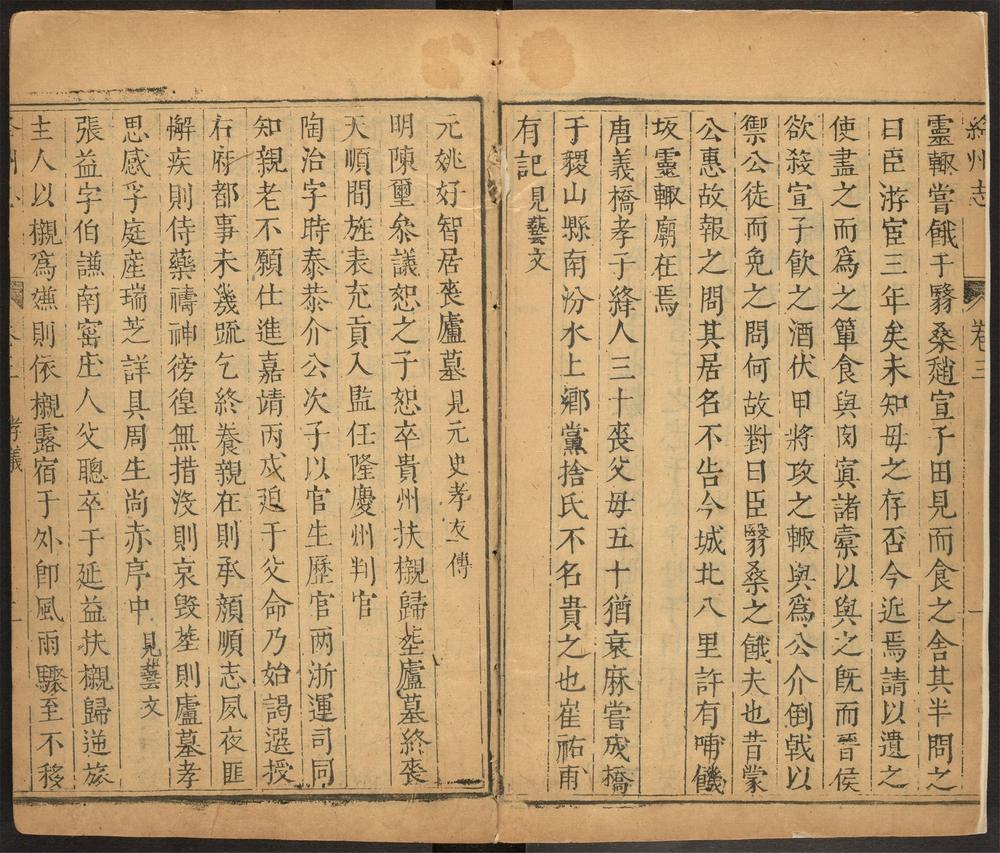 絳州志 卷三 一
靈輙嘗餓于翳桑趙宣子田見而食之舍其半問之
曰臣游宦三年矣未知母之存否今近焉請以遺之
使盡之而爲之簞食與肉寘諸橐以與之旣而晉侯
欲殺宣子飲之酒伏甲將攻之輙與爲公介倒戟以
禦公徒而免之問何故對曰臣翳桑之餓夫也昔蒙
公惠故報之問其居名不告今城北八里許有哺饑
坂靈輙廟在焉
唐義橋孝子絳人三十喪父母五十猶衰麻嘗成橋
于稷山縣南汾水上鄉黨捨氏不名貴之也崔祐甫
有記見藝文
元姚好智居丧廬墓見元史孝友傳
明陳璽叅議恕之子恕卒貴州扶櫬歸塟廬墓終喪
天順間旌表充貢入監任隆慶州判官
陶治字時泰恭介公次子以官生歷官两浙運司同
知親老不願仕進嘉靖丙戍廹于父命乃始謁選授
右府都事未幾䟽乞終養親在則承顔順志夙夜匪
懈疾則侍藥禱神徬徨無措沒則哀毀塟則廬墓孝
思感孚庭産瑞芝詳具周生尚赤序中見藝文
張益字伯謙南窰庄人父聰卒于延益扶櫬歸逆旅
主人以櫬爲嫌則依櫬露宿于外卽風雨驟至不移
孝義